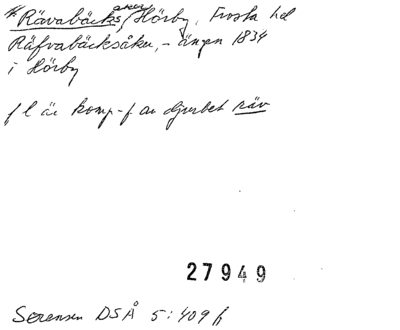 *Rävabäcksåker, Hörby, Frosta hd
Räfvabäcksåker, -ängen 1834
i Hörby
f l är komp-f av djurbet räv
27949
Sørensen DSÅ 5:409 f